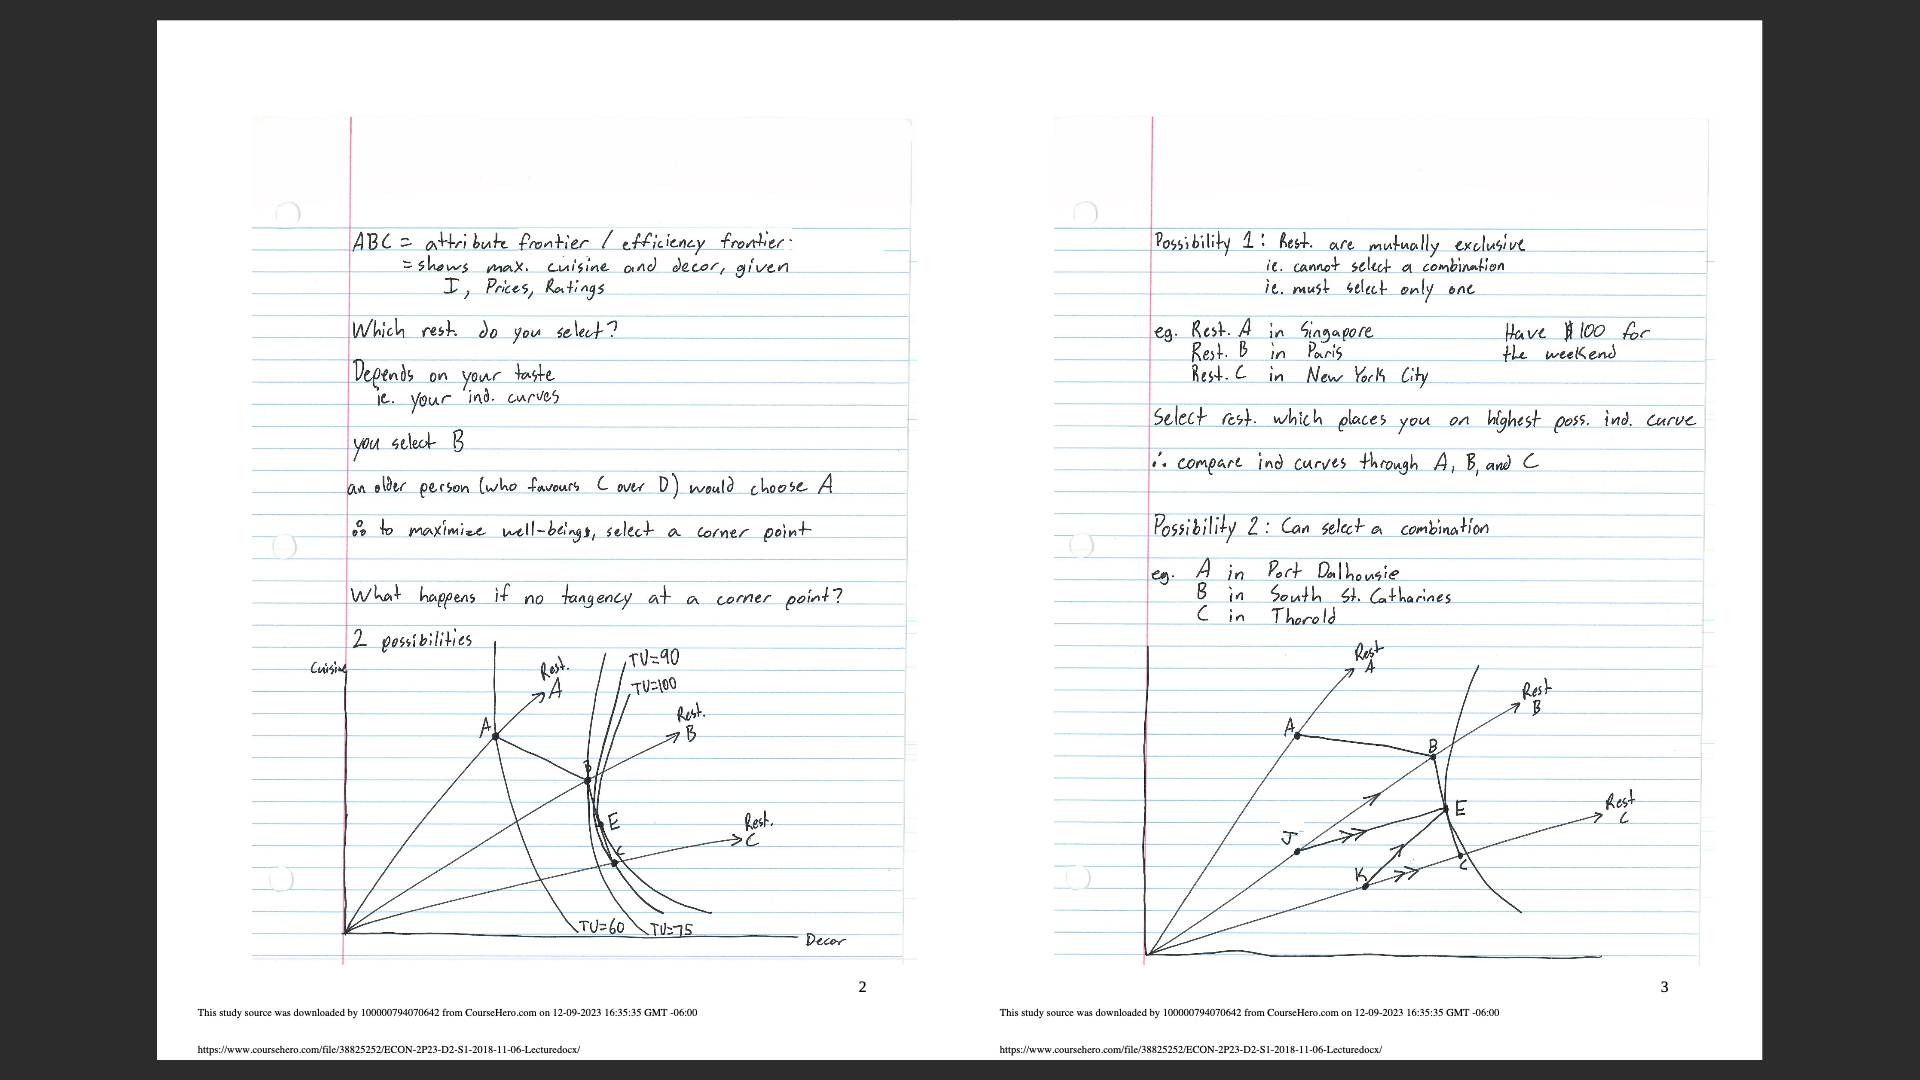 ABC = attribute frontier / efficiency frontier:
= shows max. cuisine and decor, given
I, Prices, Ratings
Which rest. do you select?
Depends on your taste
ie. your ind. curves
you select B
an older person (who favours C over D) would choose A
∴ to maximize well-beings, select a corner point
What happens if no tangency at a corner point?
2 possibilities
Cuisine
Rest.
A
TU=90
TU=100
Rest.
B
A
B
E
Rest.
C
C
TU=60
TU=75
Decor
2
This study source was downloaded by 100000794070642 from CourseHero.com on 12-09-2023 16:35:35 GMT -06:00
https://www.coursehero.com/file/38825252/ECON-2P23-D2-S1-2018-11-06-Lecturedocx/
Possibility 1: Rest. are mutually exclusive
ie. cannot select a combination
ie. must select only one
eg. Rest. A in Singapore Have $100 for
Rest. B in Paris the weekend
Rest. C in New York City
Select rest. which places you on highest poss. ind. curve
∴ compare ind curves through A, B, and C
Possibility 2: Can select a combination
eg. A in Port Dalhousie
B in South St. Catharines
C in Thorold
Rest
A
Rest
B
A
B
E
Rest
C
J
K
C
3
This study source was downloaded by 100000794070642 from CourseHero.com on 12-09-2023 16:35:35 GMT -06:00
https://www.coursehero.com/file/38825252/ECON-2P23-D2-S1-2018-11-06-Lecturedocx/